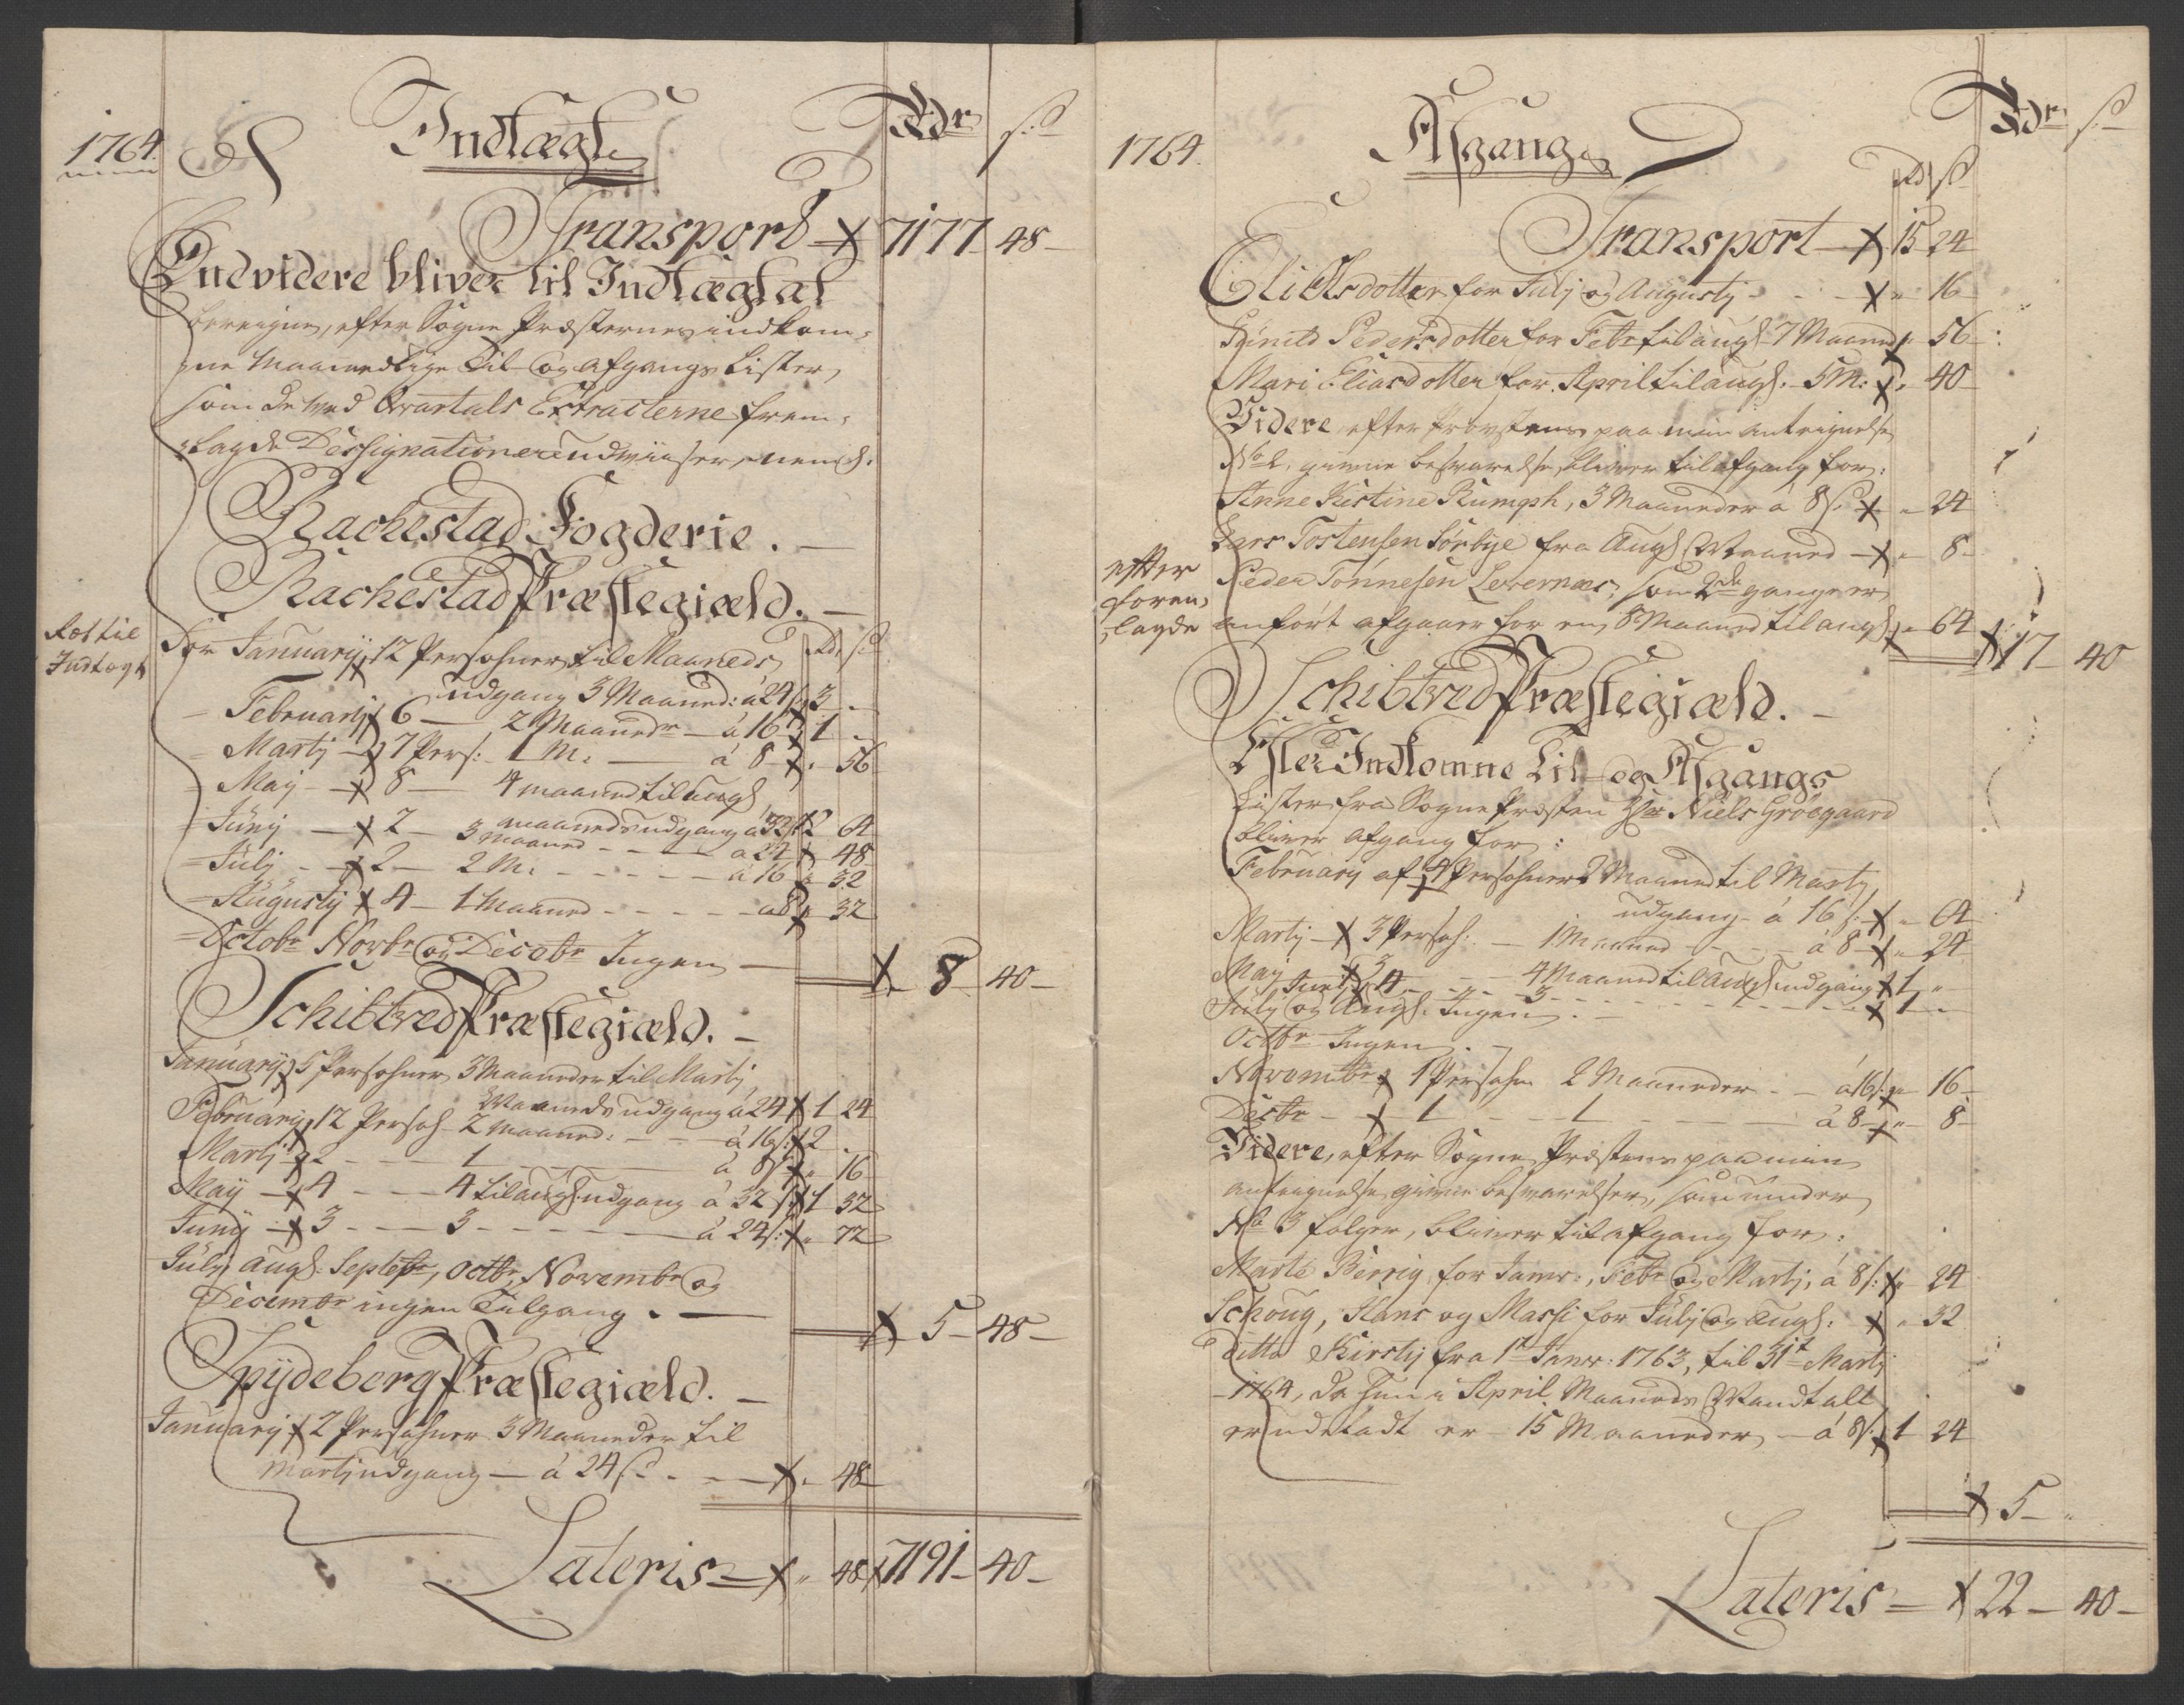 1764.
Indtægt
Rdr ß
Transport 7177 48
Endvidere bliver til Indtægt at
beregne, efter Sogne Præsternes indkom-
ne Maanedlige Til- og Afgangs Lister,
som de ved Qvartals Extracterne frem-
lagde Designationer udviiser, neml:
Rachestad Fogderie.
Rachestad Præstegiæld.
Rdr ß
For January 12 Persohner til Maaneds
udgang 3 Maaned: à 24 ß 3 "
February 6 — 2 Maaneder — à 16 ß 1 "
Martj — 7 Pers: 1 M: — à 8 " 56
May — 8 — 4 maaned til Augs
maaneds udgang à 32 ß 2 64
Junÿ — 2 — 3 maaned - - - à 24 " 48
Julj — 2 — 2 M: - - - à 16 " 32
Augustj 4 — 1 Maaned - - - à 8 " 32
Octobr Novbr og Decebr Ingen
8 40
Schibtved Præstegiæld.
Januarÿ 5 Persohner 3 Maaneder til Martj
Maaneds udgang à 24 1 24
February 12 Persoh 2 maaned: — à 16 ß 2 "
Martj 2 - - 1 — à 8 ß " 16
Maÿ — 4 - - 4 til Augs: udgang à 32 ß 1 32
Junÿ — 3 - - 3 - - - à 24 ß " 72
Julj Augs: Septebr, Octbr, Novembr og
Decembr ingen Tilgang.
5 48
Spÿdeberg Præstegiæld.
January 2 Persohner 3 Maaneder til
Martj udgang — à 24 ß - - " 48
Lateris " 48 7191 40
1764.
Afgang
Rdr ß
Rd ß
Transport 15 24
Eli Olsdotter for Julj og Augustj - - " 16
Gunild Pedersdotter for Febr til Augs 7 Maaned " 56
Mari Eliasdotter for April til Augs: 5 M: " 40
Videre efter Provstens paa min Antegnelse
No 2, givne besvarelse, bliver til afgang for:
Anne Kistine Rumph, 3 Maaneder à 8 ß " 24
Lars Tostensen Sørbÿe fra Augs Maaned " 8
Peder Tonnesen Levernæs, som 2de gange er
anført afgaaer for en, 8 Maaned til Augs " 64
17 40
Schibtved Præstegiæld.
Efter Indkomne Til- og Afgangs
Lister fra Sogne Præsten Hr Niels Grøegaard
bliver Afgang for:
February af 4 Persohner 2 Maaned til Martj
udgang à 16 ß " 64
Martj — 3 Persoh: — 1 Maaned - - à 8 " 24
May 3 - - 4 Maaned til Augs udgang 1 "
Juni 4 - - 3 - - - 1 "
Julj og Augs: Ingen.
Octbr Ingen.
Novembr 1 Persohn 2 Maaneder - - à 16 ß " 16
Decbr — 1 - - 1 - - - à 8 " 8
Videre, efter Sogne Præstens paa min
antegnelse givne besvarelser, som under
No 3 følger, bliver til afgang for:
Marte Berrig for Januar:, Febr og Martj, à 8 ß " 24
Schoug, Hans og Massi for Julj og Augs: " 32
Ditto Kirstj fra 1st Januar: 1763, til 31t Martj
1764, da hun i April Maaneds Mandtall
er udeladt er 15 Maaneder — à 8 ß 1 24
5 "
Lateris 22 40
Tagt til
Indtægt
efter
foren
lagde